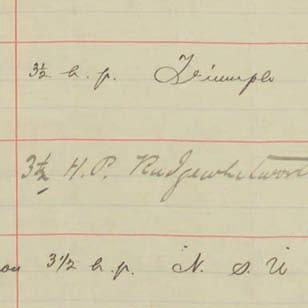 3½ h.p. Triumph
3½ H.P. Rudgewhitwort
3 1/2 h.p. N. S. U